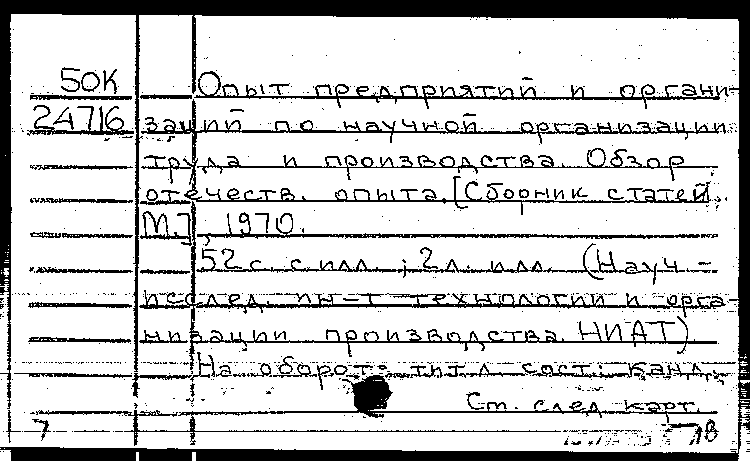 50К
24716
Опыт предприятий и органи-
заций по научной организации
труда и производства. Обзор
отечеств. опыта. [Сборник статей.
М.], 1970.
52 с. с илл.; 2 л. илл. (Науч.-
исслед. ин-т технологии и орга-
низации производства. НИАТ)
На обороте тит. л. сост.: канд.
См. след. карт.
7